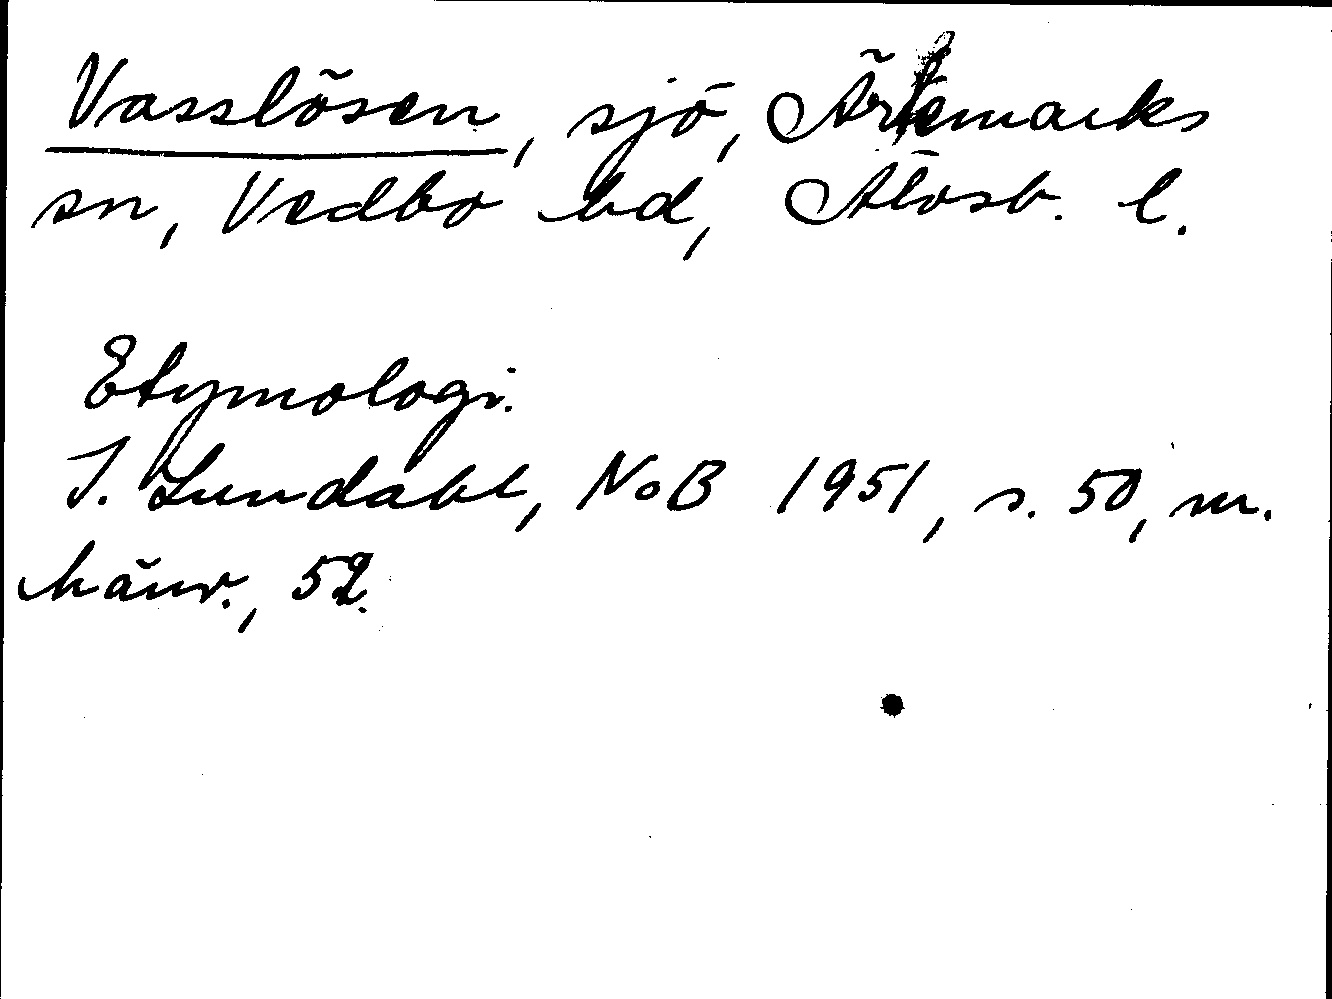 Vasslösen, sjö, Ärtemarks
sn, Vedbo hd, Älvsb. l.
Etymologi.
I. Lundahl, NoB 1951, s. 50, m.
hänv., 52.